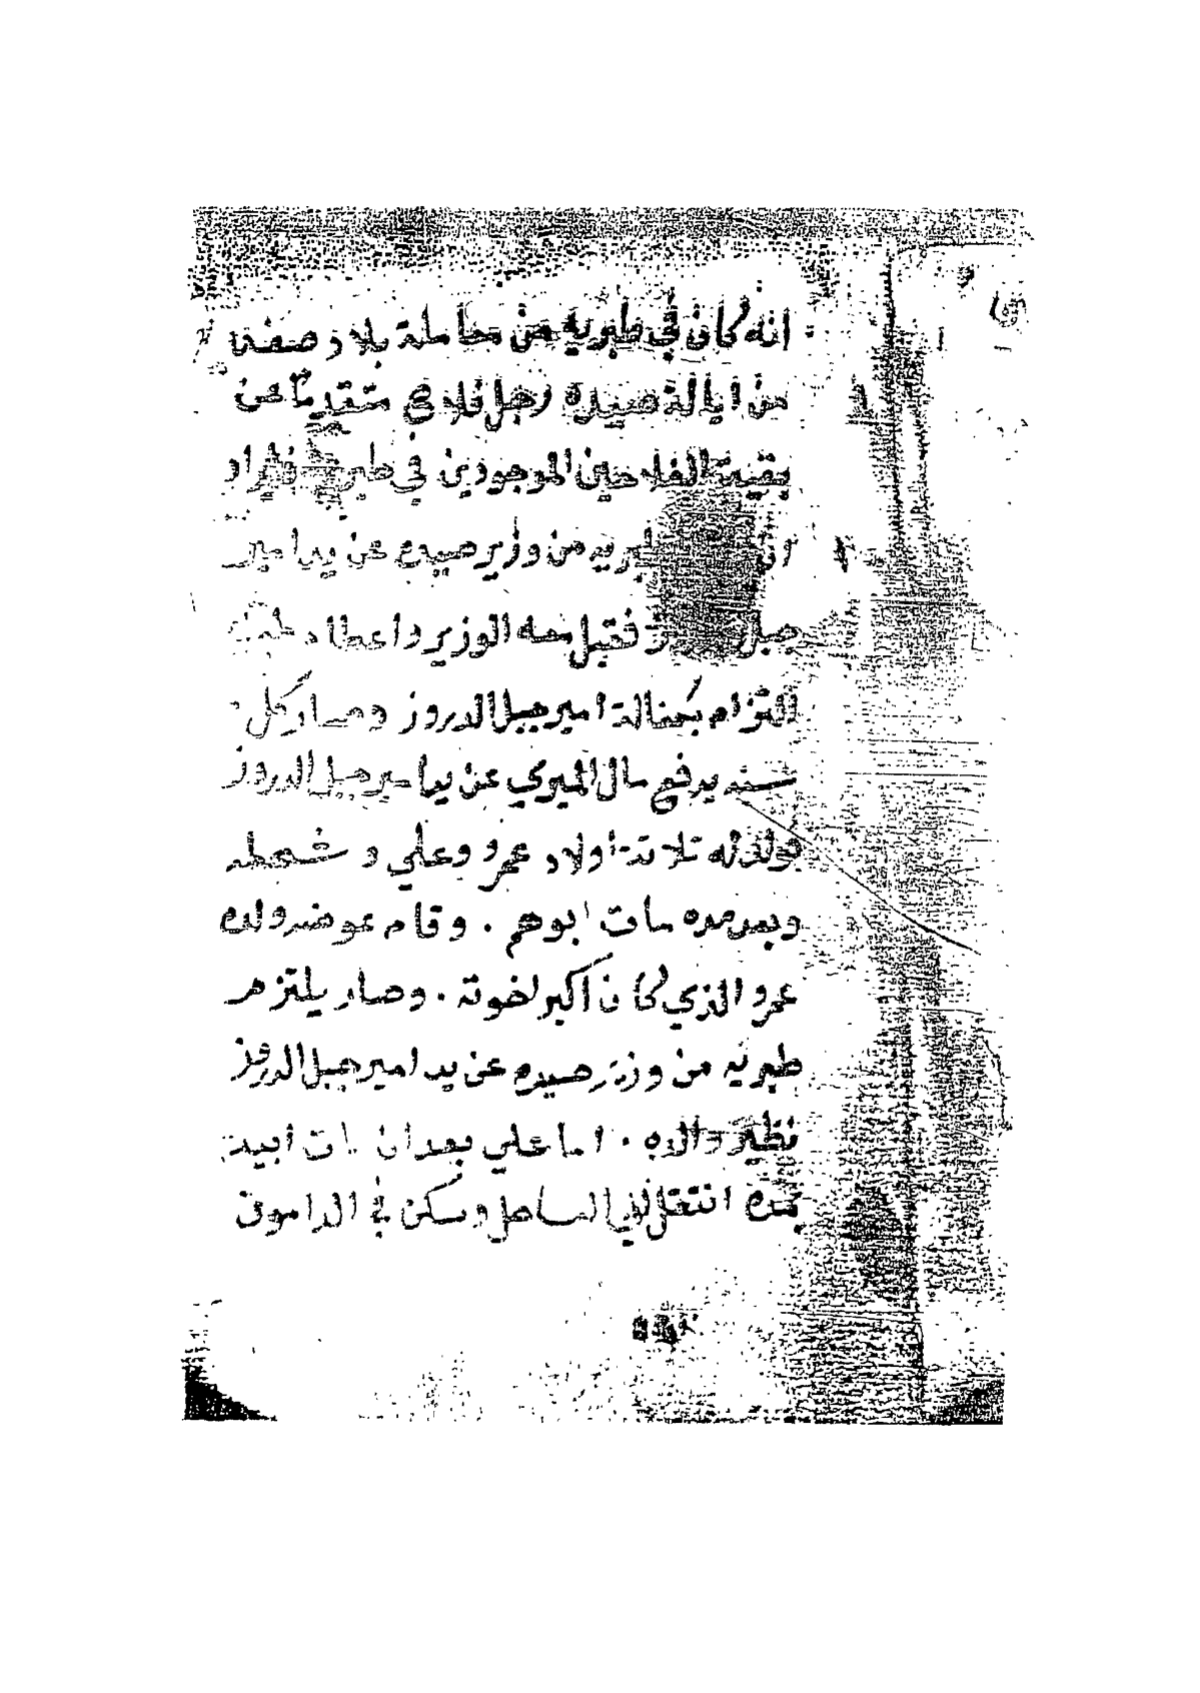 انه كان في طبريه من معاملة بلاد صفد
من ايالة صيده رجل فلاح متقدماً عن
بقية الفلاحين الموجودين في فاراد
ان من وزير صيده عن يد امير
جبل فقبل منه الوزير واعطاه
التزام بكفالة امير جبل الدروز وصار كل
سنه يدفع مال الميري عن يد امير جبل الدروز
فولد له تلاتة اولاد عمر وعلي و
وبعد مده مات ابوهم . وقام عوضه ولده
عمر والذي كان اكبر اخوته . وصار يلتزم
طبريه من وزير صيده عن يد امير جبل الدروز
نظير والده . اما علي بعد ان مات ابيه
بمده انتقل الي الساحل وسكن في الدامون